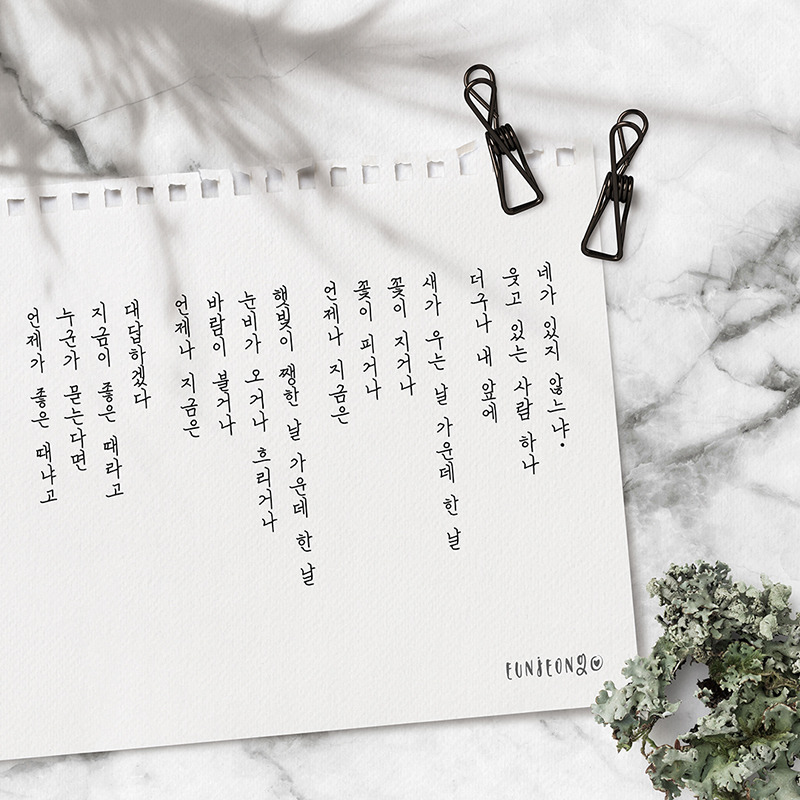 언제가 좋은 때냐고
누군가 묻는다면
지금이 좋은 때라고
대답하겠다
언제나 지금은
바람이 불거나
눈비가 오거나 흐리거나
햇빛이 쨍한 날 가운데 한 날
언제나 지금은
꽃이 피거나
꽃이 지거나
새가 우는 날 가운데 한 날
더구나 내 앞에
웃고 있는 사람 하나
네가 있지 않느냐.
EUNJEONG